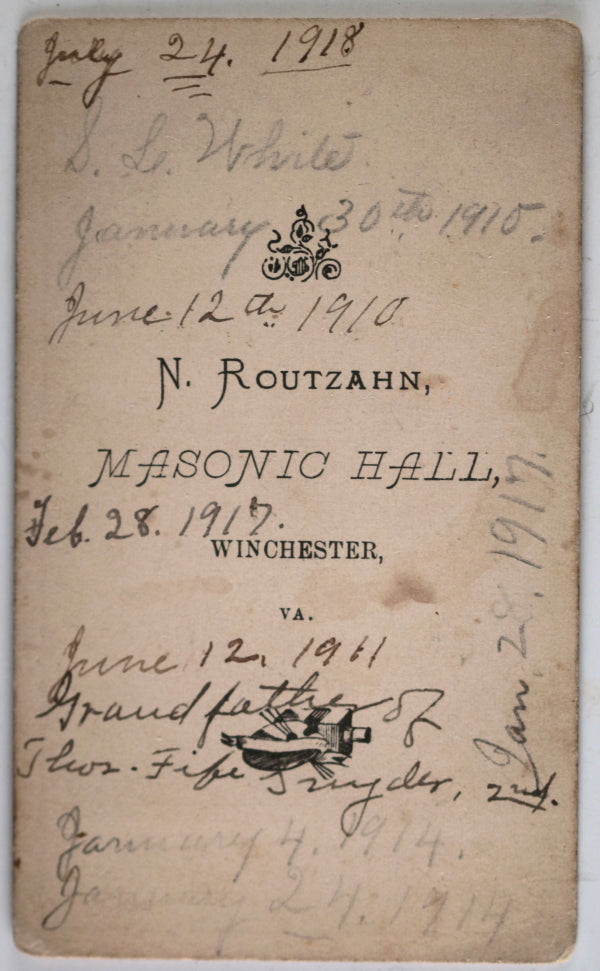 July 24. 1918
S. L. White
January 30th 1915.
June 12th 1910
N. ROUTZAHN,
MASONIC HALL,
Feb. 28. 1917.
WINCHESTER,
VA.
June 12, 1911
Grandfather of
Thos. Fife Snyder, 2nd.
January 4. 1914.
January 24. 1914
Jan. 28. 1917.